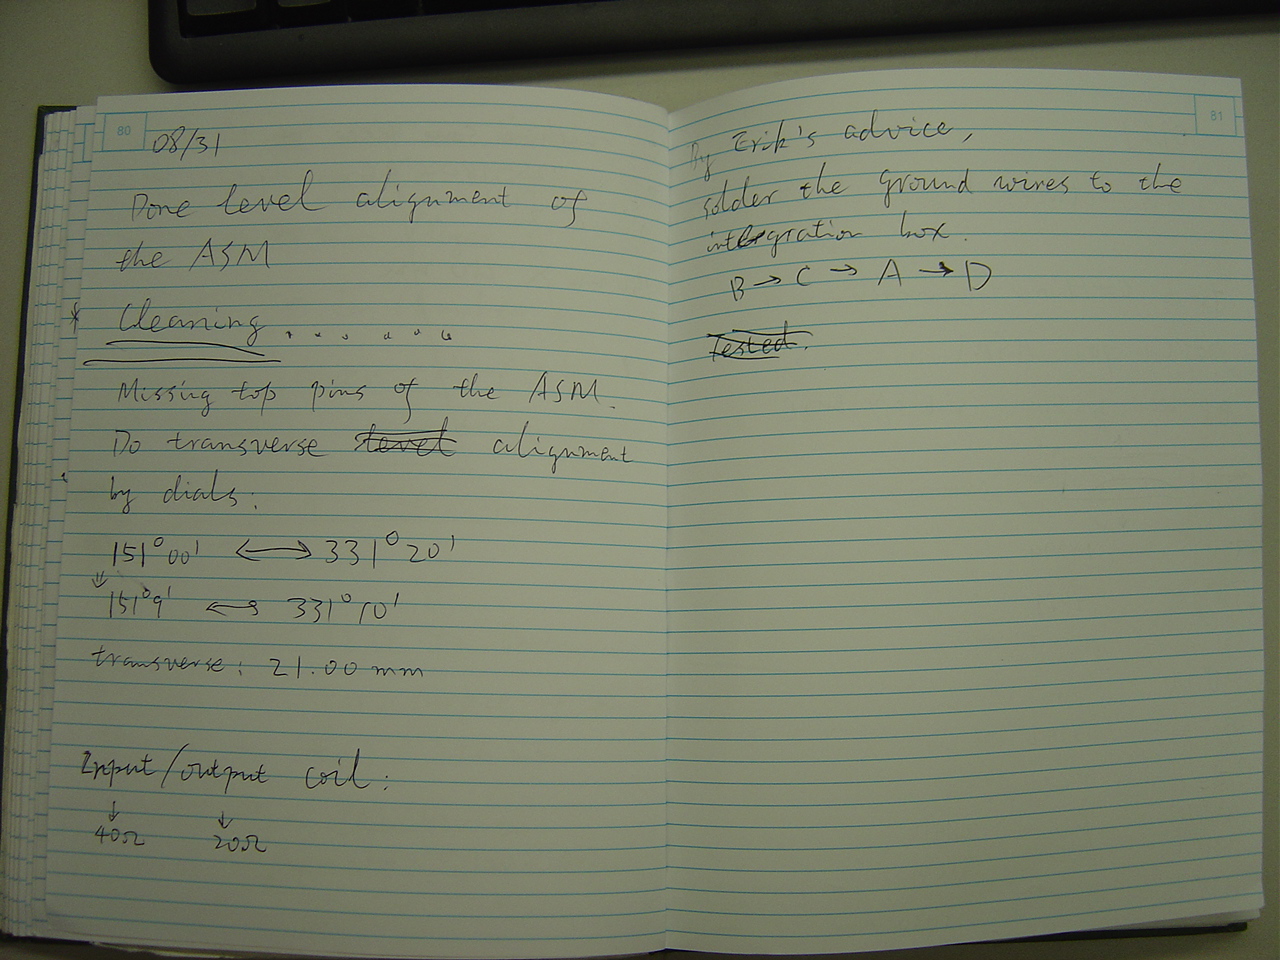 80
08/31
Done level alignment of
the ASM
* Cleaning . . . . . .
Missing top pins of the ASM.
Do transverse level alignment
by dials:
151°00' ↔ 331°20'
⇓
151°9' ↔ 331°10'
transverse: 21.00 mm
Input/output coil:
↓ ↓
40Ω 20Ω
81
By Erik's advice,
solder the ground wires to the
intergration box.
B → C → A → D
Tested.